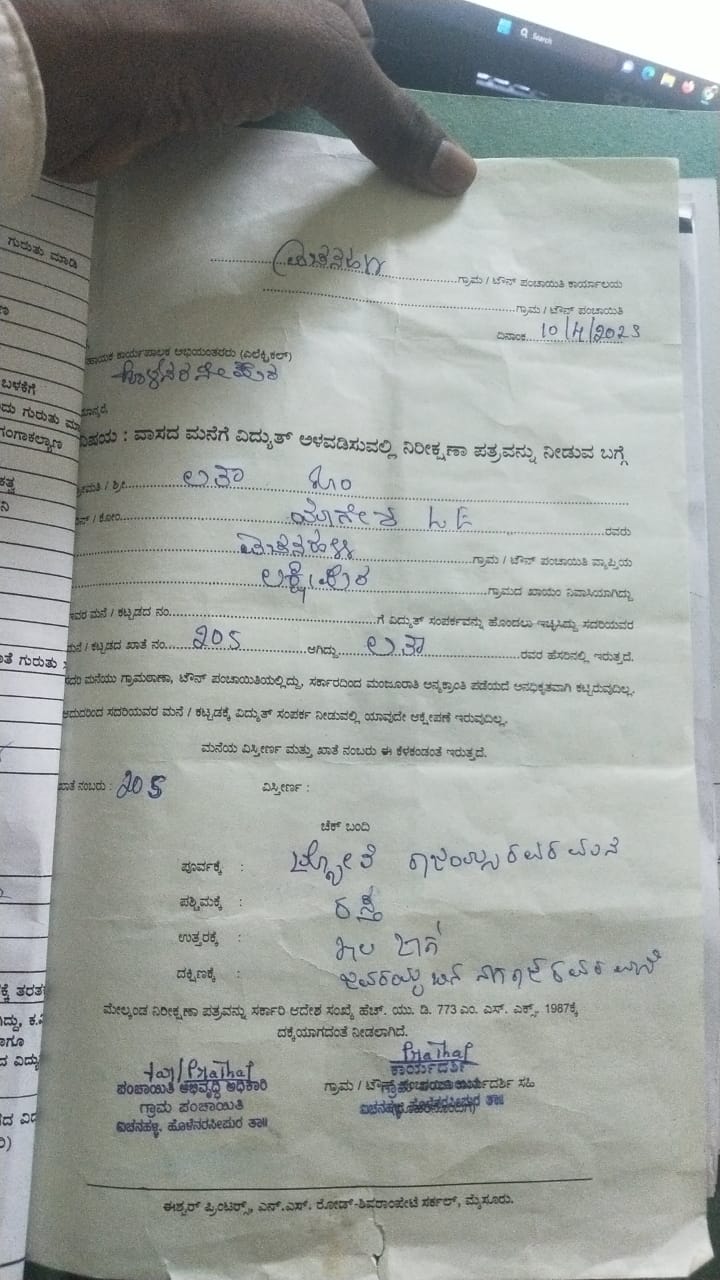 Search
ಗುರುತು ಮಾಡಿ
ಬಳಕೆಗೆ
ಗಂಗಾಕಲ್ಯಾಣ
ಗ್ರಾಮ / ಟೌನ್ ಪಂಚಾಯಿತಿ ಕಾರ್ಯಾಲಯ
ಗ್ರಾಮ / ಟೌನ್ ಪಂಚಾಯಿತಿ
ದಿನಾಂಕ 10/4/2023
ಕಾರ್ಯಪಾಲಕ ಅಭಿಯಂತರರು (ಎಲೆಕ್ಟ್ರಿಕಲ್)
ಹೊಳೆನರಸೀಪುರ
ವಿಷಯ : ವಾಸದ ಮನೆಗೆ ವಿದ್ಯುತ್ ಅಳವಡಿಸುವಲ್ಲಿ ನಿರೀಕ್ಷಣಾ ಪತ್ರವನ್ನು ನೀಡುವ ಬಗ್ಗೆ
ಶ್ರೀಮತಿ / ಶ್ರೀ. ಲತಾ ಕೋಂ
/ ಕೋಂ. ಯೋಗೇಶ L E ರವರು
ಗ್ರಾಮ / ಟೌನ್ ಪಂಚಾಯಿತಿ ವ್ಯಾಪ್ತಿಯ
ಲಕ್ಷ್ಮೀಪುರ ಗ್ರಾಮದ ಖಾಯಂ ನಿವಾಸಿಯಾಗಿದ್ದು
ಇವರ ಮನೆ / ಕಟ್ಟಡದ ನಂ. ಗೆ ವಿದ್ಯುತ್ ಸಂಪರ್ಕವನ್ನು ಹೊಂದಲು ಇಚ್ಛಿಸಿದ್ದು ಸದರಿಯವರ
ಮನೆ / ಕಟ್ಟಡದ ಖಾತೆ ನಂ. 205 ಆಗಿದ್ದು ಲತಾ ರವರ ಹೆಸರಿನಲ್ಲಿ ಇರುತ್ತದೆ.
ಮನೆಯು ಗ್ರಾಮಠಾಣಾ, ಟೌನ್ ಪಂಚಾಯಿತಿಯಲ್ಲಿದ್ದು, ಸರ್ಕಾರದಿಂದ ಮಂಜೂರಾತಿ ಅನ್ಯಕ್ರಾಂತಿ ಪಡೆಯದೆ ಅನಧಿಕೃತವಾಗಿ ಕಟ್ಟಿರುವುದಿಲ್ಲ.
ಆದುದರಿಂದ ಸದರಿಯವರ ಮನೆ / ಕಟ್ಟಡಕ್ಕೆ ವಿದ್ಯುತ್ ಸಂಪರ್ಕ ನೀಡುವಲ್ಲಿ ಯಾವುದೇ ಆಕ್ಷೇಪಣೆ ಇರುವುದಿಲ್ಲ.
ಮನೆಯ ವಿಸ್ತೀರ್ಣ ಮತ್ತು ಖಾತೆ ನಂಬರು ಈ ಕೆಳಕಂಡಂತೆ ಇರುತ್ತದೆ.
ಖಾತೆ ನಂಬರು : 205 ವಿಸ್ತೀರ್ಣ :
ಚೆಕ್ ಬಂದಿ
ಪೂರ್ವಕ್ಕೆ : ರವರ ಮನೆ
ಪಶ್ಚಿಮಕ್ಕೆ : ರಸ್ತೆ
ಉತ್ತರಕ್ಕೆ :
ದಕ್ಷಿಣಕ್ಕೆ : ರವರ ಮನೆ
ಮೇಲ್ಕಂಡ ನಿರೀಕ್ಷಣಾ ಪತ್ರವನ್ನು ಸರ್ಕಾರಿ ಆದೇಶ ಸಂಖ್ಯೆ ಹೆಚ್. ಯು. ಡಿ. 773 ಎಂ. ಎಸ್. ಎಕ್ಸ್. 1987ಕ್ಕೆ
ದಕ್ಕೆಯಾಗದಂತೆ ನೀಡಲಾಗಿದೆ.
ಪಂಚಾಯಿತಿ ಅಭಿವೃದ್ಧಿ ಅಧಿಕಾರಿ
ಗ್ರಾಮ ಪಂಚಾಯಿತಿ
ಹೊಳೆನರಸೀಪುರ ತಾ॥
ಕಾರ್ಯದರ್ಶಿ
ಗ್ರಾಮ / ಟೌನ್ ಪಂಚಾಯಿತಿ ಕಾರ್ಯದರ್ಶಿ ಸಹಿ
ಹೊಳೆನರಸೀಪುರ ತಾ॥
ಈಶ್ವರ್ ಪ್ರಿಂಟರ್ಸ್, ಎನ್.ಎಸ್. ರೋಡ್-ಶಿವರಾಂಪೇಟೆ ಸರ್ಕಲ್, ಮೈಸೂರು.